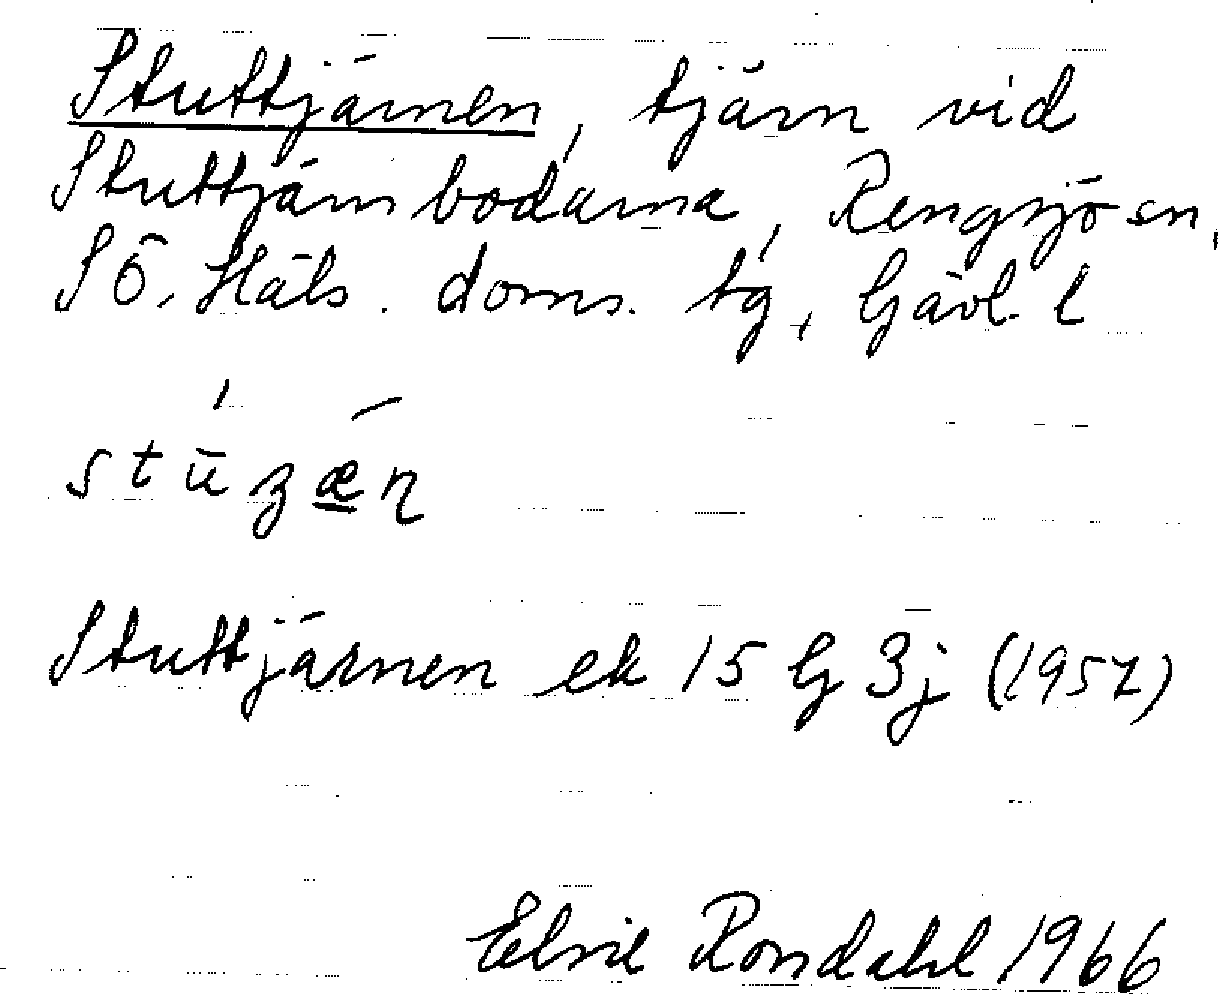 Stuttjärnen, tjärn vid
Stuttjärnbodarna, Rengsjö sn,
SÖ. Häls. doms. tg, Gävl. l
stūzæn
Stuttjärnen ek 15 G 3j (1957)
Elsie Rondahl 1966